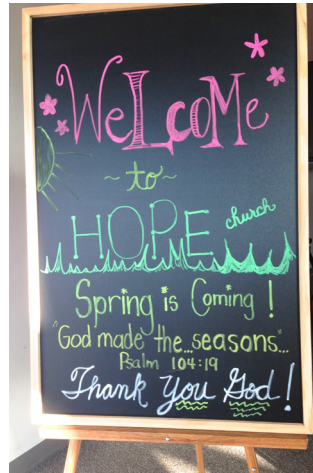 WeLcoMe
~to~
HOPE church
Spring is Coming!
"God made the...seasons"...
Psalm 104:19
Thank You God!